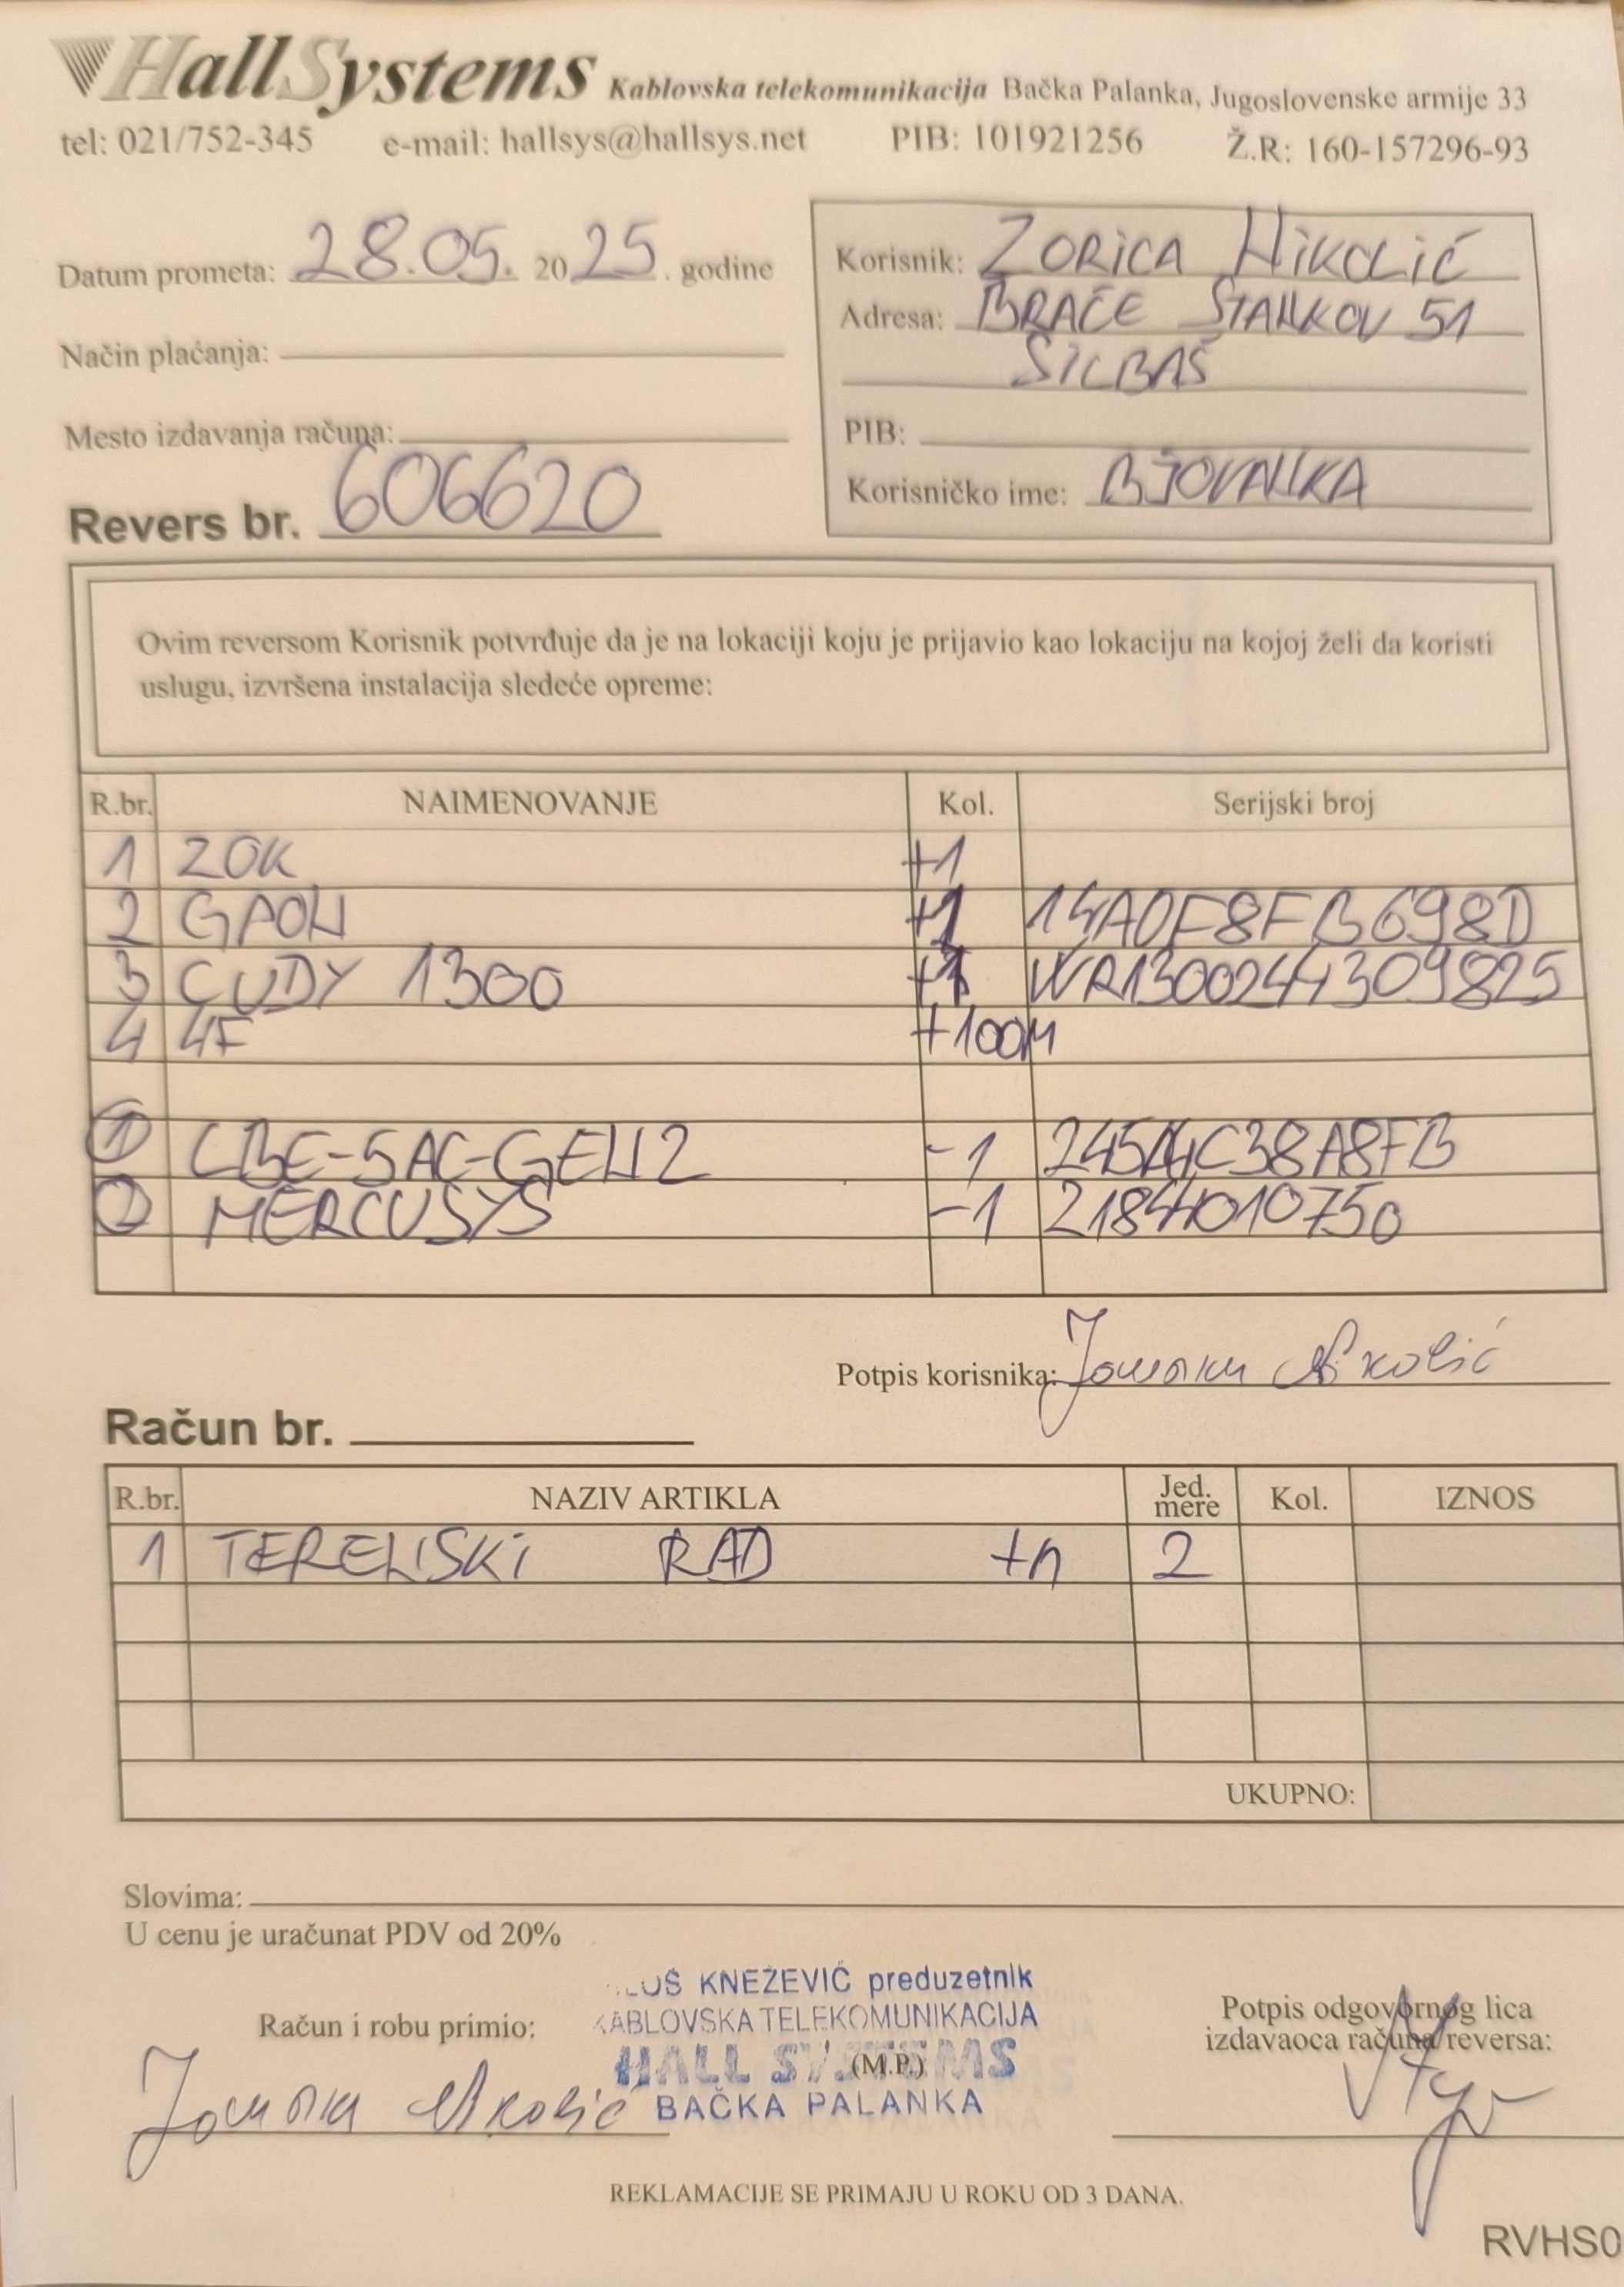 HallSystems Kablovska telekomunikacija Bačka Palanka, Jugoslovenske armije 33
tel: 021/752-345 e-mail: hallsys@hallsys.net PIB: 101921256 Ž.R: 160-157296-93
Datum prometa: 28.05. 2025. godine
Način plaćanja:
Mesto izdavanja računa:
Revers br. 606620
Korisnik: ZORICA NIKOLIĆ
Adresa: BRAĆE STANKOV 51
SILBAŠ
PIB:
Korisničko ime: BJOVANKA
Ovim reversom Korisnik potvrđuje da je na lokaciji koju je prijavio kao lokaciju na kojoj želi da koristi
uslugu, izvršena instalacija sledeće opreme:
R.br. NAIMENOVANJE Kol. Serijski broj
1 ZOK +1
2 GPON +1 14A0F8FB698D
3 CUDY 1300 +1 WR1300244309825
4 4F +100M
1 LBE-5AC-GEN2 -1 245A4C38A8FB
2 MERCUSYS -1 21844010750
Potpis korisnika: Jovanka Nikolić
Račun br.
R.br. NAZIV ARTIKLA Jed. mere Kol. IZNOS
1 TERENSKI RAD +n 2
UKUPNO:
Slovima:
U cenu je uračunat PDV od 20%
KNEŽEVIĆ preduzetnik
KABLOVSKA TELEKOMUNIKACIJA
HALL SYSTEMS
(M.P.)
BAČKA PALANKA
Račun i robu primio:
Jovanka Nikolić
Potpis odgovornog lica
izdavaoca računa/reversa:
REKLAMACIJE SE PRIMAJU U ROKU OD 3 DANA.
RVHS0